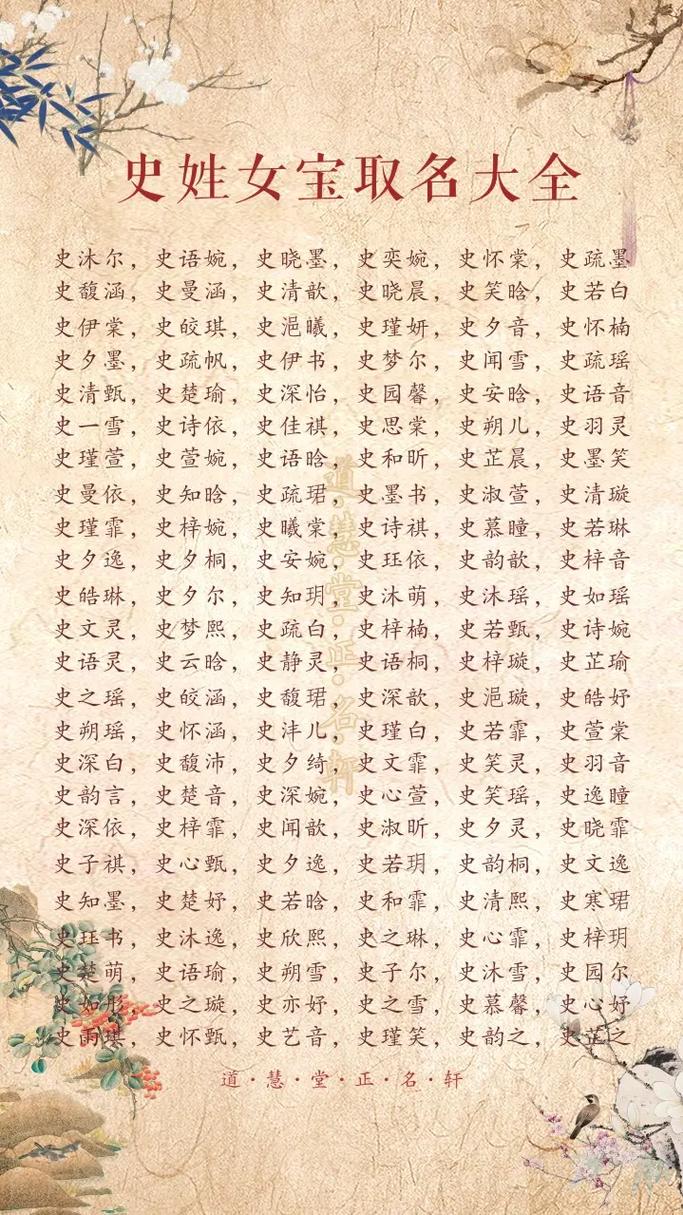 史姓女宝取名大全
史沐尔，史语婉，史晓墨，史奕婉，史怀棠，史疏墨
史馥涵，史曼涵，史清歆，史晓晨，史笑晗，史若白
史伊棠，史皎琪，史浥曦，史瑾妍，史夕音，史怀楠
史夕墨，史疏帆，史伊书，史梦尔，史闻雪，史疏瑶
史清甄，史楚瑜，史深怡，史园馨，史安晗，史语音
史一雪，史诗依，史佳祺，史思棠，史朔儿，史羽灵
史瑾萱，史萱婉，史语晗，史和昕，史芷晨，史墨笑
史曼依，史知晗，史疏珺，史墨书，史淑萱，史清璇
史瑾霏，史梓婉，史曦棠，史诗祺，史慕瞳，史若琳
史夕逸，史夕桐，史安婉，史珏依，史韵歆，史梓音
史皓琳，史夕尔，史知玥，史沐萌，史沐瑶，史如瑶
史文灵，史梦熙，史疏白，史梓楠，史若甄，史诗婉
史语灵，史云晗，史静灵，史语桐，史梓璇，史芷瑜
史之瑶，史皎涵，史馥珺，史深歆，史浥璇，史皓妤
史朔瑶，史怀涵，史沣儿，史瑾白，史若霏，史萱棠
史深白，史馥沛，史夕绮，史文霏，史笑灵，史羽音
史韵言，史楚音，史深婉，史心萱，史笑瑶，史逸瞳
史深依，史梓霏，史闻歆，史淑昕，史夕灵，史晓霏
史子祺，史心甄，史夕逸，史若玥，史韵桐，史文逸
史知墨，史楚妤，史若晗，史和霏，史清熙，史寒珺
史珏书，史沐逸，史欣熙，史之琳，史心霏，史梓玥
史楚萌，史语瑜，史朔雪，史子尔，史沐雪，史园尔
史如彤，史之璇，史亦妤，史之雪，史慕馨，史心妤
史雨琪，史怀甄，史艺音，史瑾笑，史韵之，史芷之
道·慧·堂·正·名·轩
道·慧·堂·正·名·轩